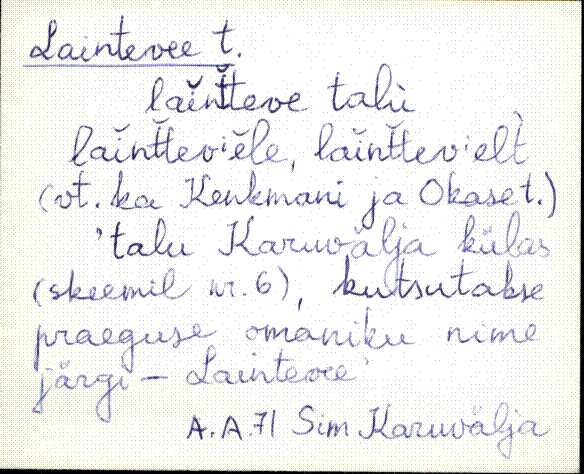 Laintevee t.
laĭnt̆t̆eve talù
laĭnt̆t̆evi̯ĕle, laĭnt̆t̆evi̯elt̀
(vt. ka Kenkmani ja Okase t.)
'talu Karuvälja külas
(skeemil nr. 6), kutsutakse
praeguse omaniku nime
järgi – Laintevee'
A.A.71 Sim Karuvälja